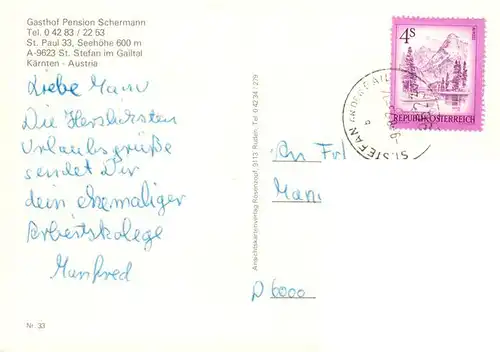 Gasthof Pension Schermann
Tel. 0 42 83 / 22 63
St. Paul 33, Seehöhe 600 m
A-9623 St. Stefan im Gailtal
Kärnten - Austria
Liebe
Die Herzlichsten
Urlaubsgrüße
sendet Dir
dein ehemaliger
Arbeitskolege
Manfred
Nr. 33
Ansichtskartenverlag Rosenzopf, 9113 Ruden, Tel. 0 42 34 / 279
4S
REPUBLIK ÖSTERREICH
ST. STEFAN
An Frl
D 6000